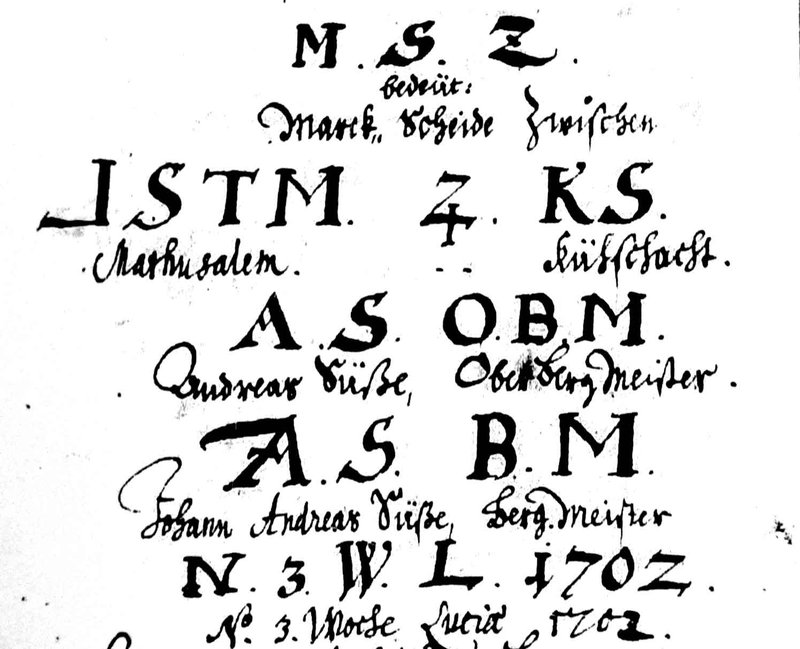 M. S. Z.
bedeüt:
Marck„ Scheide Zwischen
I S T M. 4. K S.
Mathusalem. Kühschacht.
A. S. O. B. M.
Andreas Süße, Ober Berg Meister.
A. S. B. M.
Johann Andreas Süße, Berg. Meister
N. 3. W. L. 1702.
No. 3. Woche Luciæ 1702.